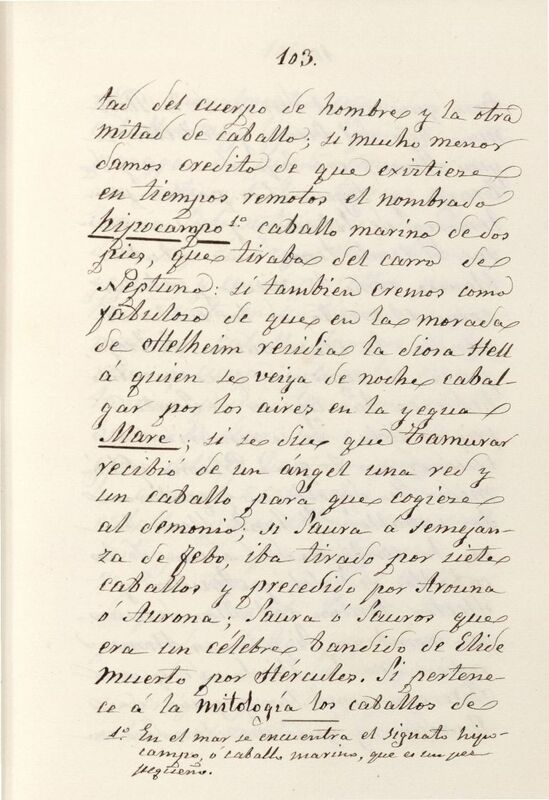 103.
tad del cuerpo de hombre y la otra
mitad de caballo; si mucho menor
damos credito de que existiese
en tiempos remotos el nombrado
hipocampo 1.º caballo marino de dos
pies, que tiraba del carro de
Neptuno: si tambien cremos como
fabuloso de que en la morada
de Helheim residia la diosa Hell
á quien se veiya de noche cabal-
gar por los aires en la yegua
Mare; si se dice que Tamurar
recibió de un ángel una red y
un caballo para que cogiese
al demonio; si Saura a semeján-
za de Febo, iba tirado por siete
caballos y precedido por Arouna
ó Aurona; Saura ó Sauros que
era un célebre bandido de Elide
muerto por Hércules. Si pertene-
ce á la mitología los caballos de
1.º En el mar se encuentra el signato hipo-
campo, ó caballo marino, que es un pez
pequeño.